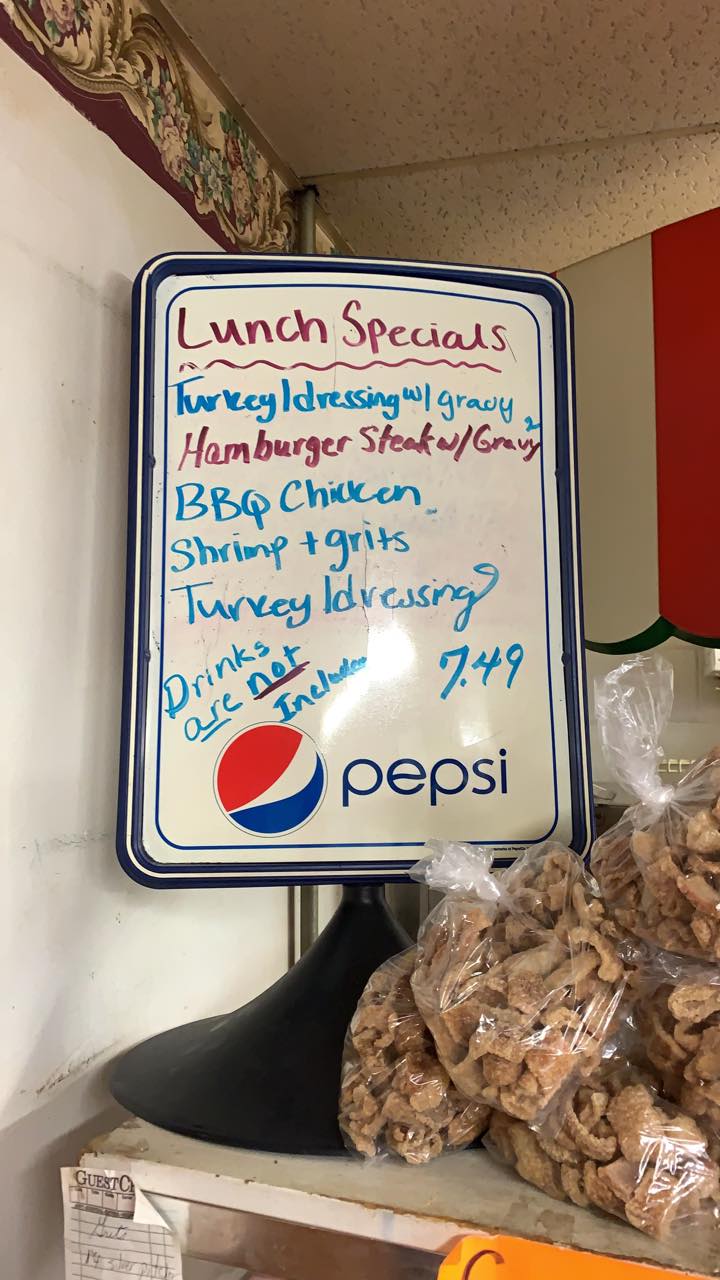 Lunch Specials
Turkey/dressing w/ gravy
Hamburger Steak w/ Gravy
BBQ Chicken
Shrimp + grits
Turkey/dressing
Drinks
are not
Included
7.49
pepsi
GUEST